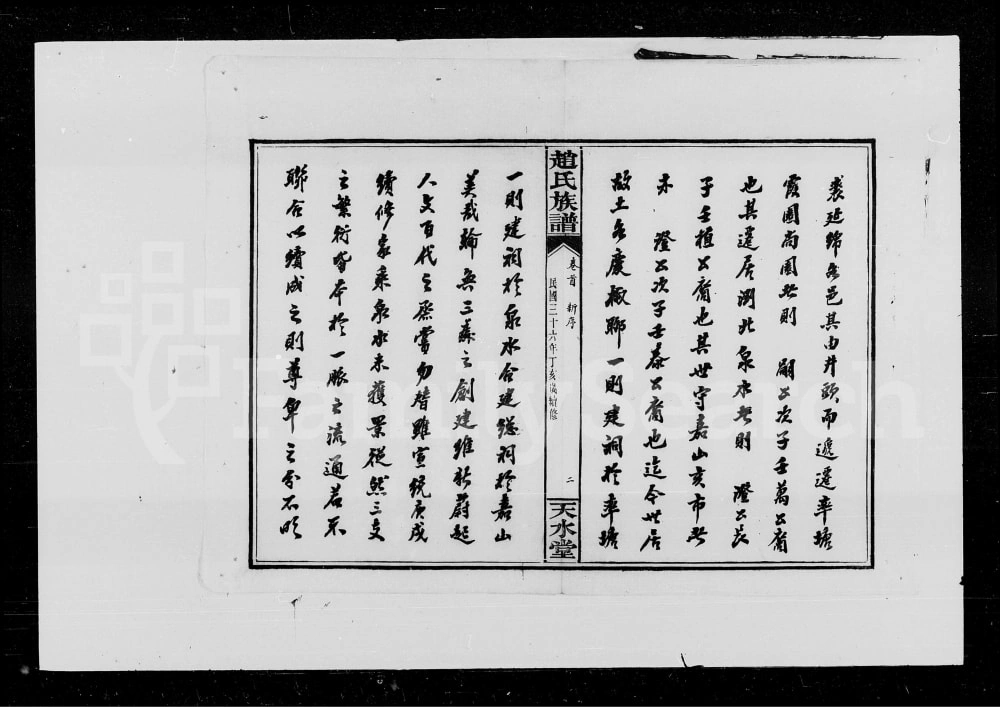 裘延綿各邑其由井頭而遞遷率塘
霞圃尚圃者則 嗣公次子壬萬公裔
也其遷居浏北泉水者則 澄公長
子壬植公裔也其世守嘉山亥市者
亦 澄公次子壬泰公裔也迄今世居
故土各慶椒聊一則建祠於率塘
趙氏族譜
卷首 新序
民國三十六年丁亥歲續修
二
天水堂
一則建祠於泉水合建總祠於嘉山
美哉輪奐三森之創建維新蔚起
人文百代之烝嘗勿替雖宣統庚戌
續修家乘泉水未獲景從然三支
之繁衍皆本於一脈之流通若不
聯合以續成之則尊卑之分不明
FamilySearch